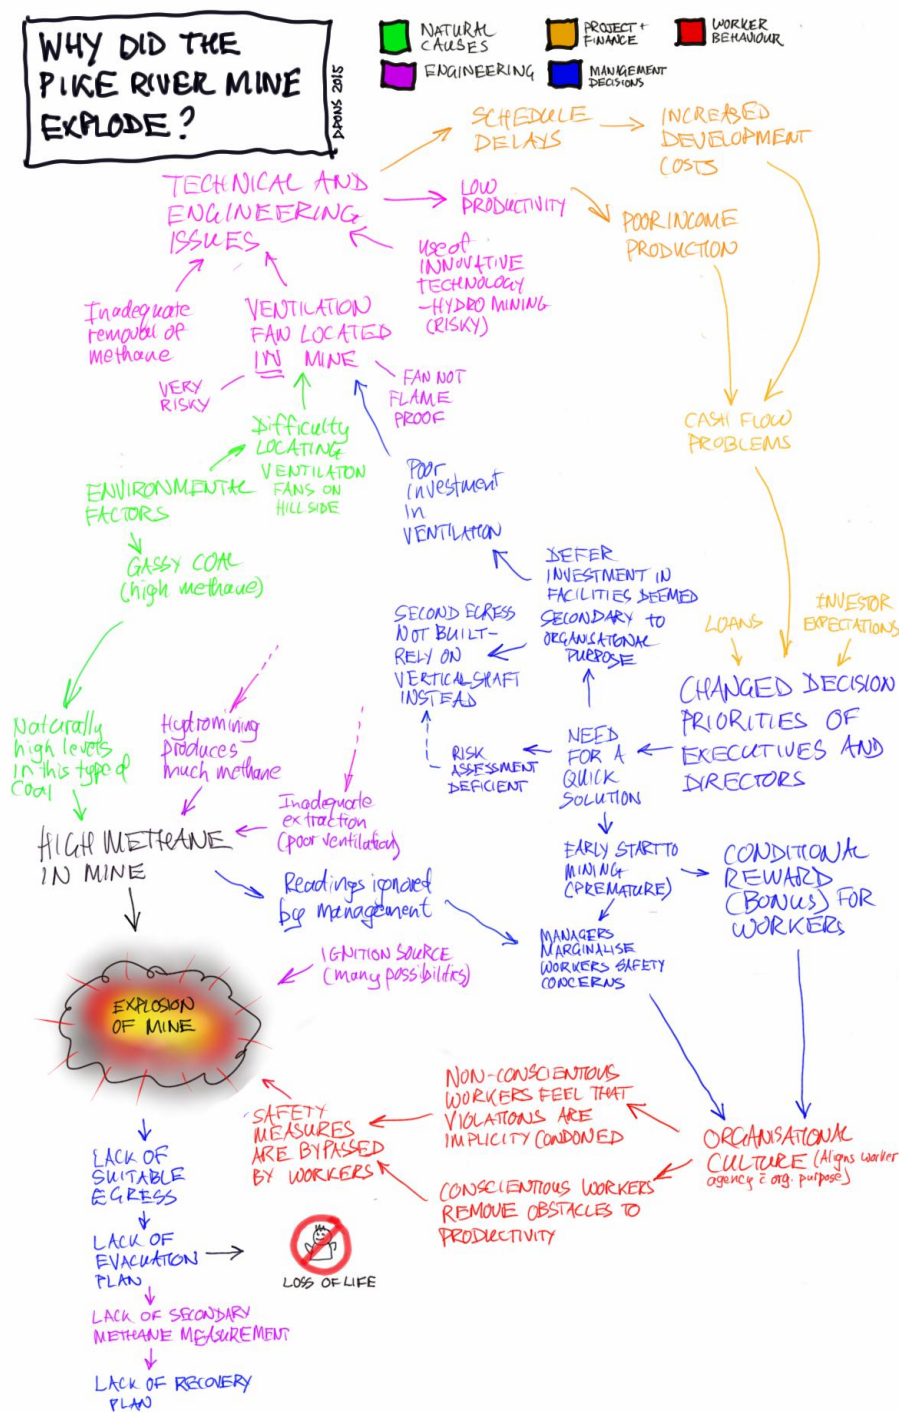 WHY DID THE
PIKE RIVER MINE
EXPLODE?
D.PONS 2015
NATURAL
CAUSES
PROJECT +
FINANCE
WORKER
BEHAVIOUR
ENGINEERING
MANAGEMENT
DECISIONS
SCHEDULE
DELAYS
INCREASED
DEVELOPMENT
COSTS
TECHNICAL AND
ENGINEERING
ISSUES
LOW
PRODUCTIVITY
POOR INCOME
PRODUCTION
use of
INNOVATIVE
TECHNOLOGY
-HYDRO MINING
(RISKY)
Inadequate
removal of
methane
VENTILATION
FAN LOCATED
IN MINE
VERY
RISKY
FAN NOT
FLAME
PROOF
CASH FLOW
PROBLEMS
Difficulty
LOCATING
VENTILATON
FANS ON
HILLSIDE
ENVIRONMENTAL
FACTORS
Poor
investment
in
VENTILATION
GASSY COAL
(high methane)
DEFER
INVESTMENT IN
FACILITIES DEEMED
SECONDARY TO
ORGANISATIONAL
PURPOSE
SECOND EGRESS
NOT BUILT-
RELY ON
VERTICAL SHAFT
INSTEAD
LOANS
INVESTOR
EXPECTATIONS
CHANGED DECISION
PRIORITIES OF
EXECUTIVES AND
DIRECTORS
Naturally
high levels
in this type of
coal
Hydromining
produces
much methane
RISK
ASSESSMENT
DEFICIENT
NEED
FOR A
QUICK
SOLUTION
Inadequate
extraction
(poor ventilation)
HIGH METHANE
IN MINE
EARLY START TO
MINING
(PREMATURE)
CONDITIONAL
REWARD
(BONUS) FOR
WORKERS
Readings ignored
by management
MANAGERS
MARGINALISE
WORKERS SAFETY
CONCERNS
IGNITION SOURCE
(many possibilities)
EXPLOSION
OF MINE
NON-CONSCIENTIOUS
WORKERS FEEL THAT
VIOLATIONS ARE
IMPLICITY CONDONED
SAFETY
MEASURES
ARE BYPASSED
BY WORKERS
ORGANISATIONAL
CULTURE (Aligns worker
agency c̄ org. purpose)
CONSCIENTIOUS WORKERS
REMOVE OBSTACLES TO
PRODUCTIVITY
LACK OF
SUITABLE
EGRESS
LACK OF
EVACUATION
PLAN
LOSS OF LIFE
LACK OF SECONDARY
METHANE MEASUREMENT
LACK OF RECOVERY
PLAN